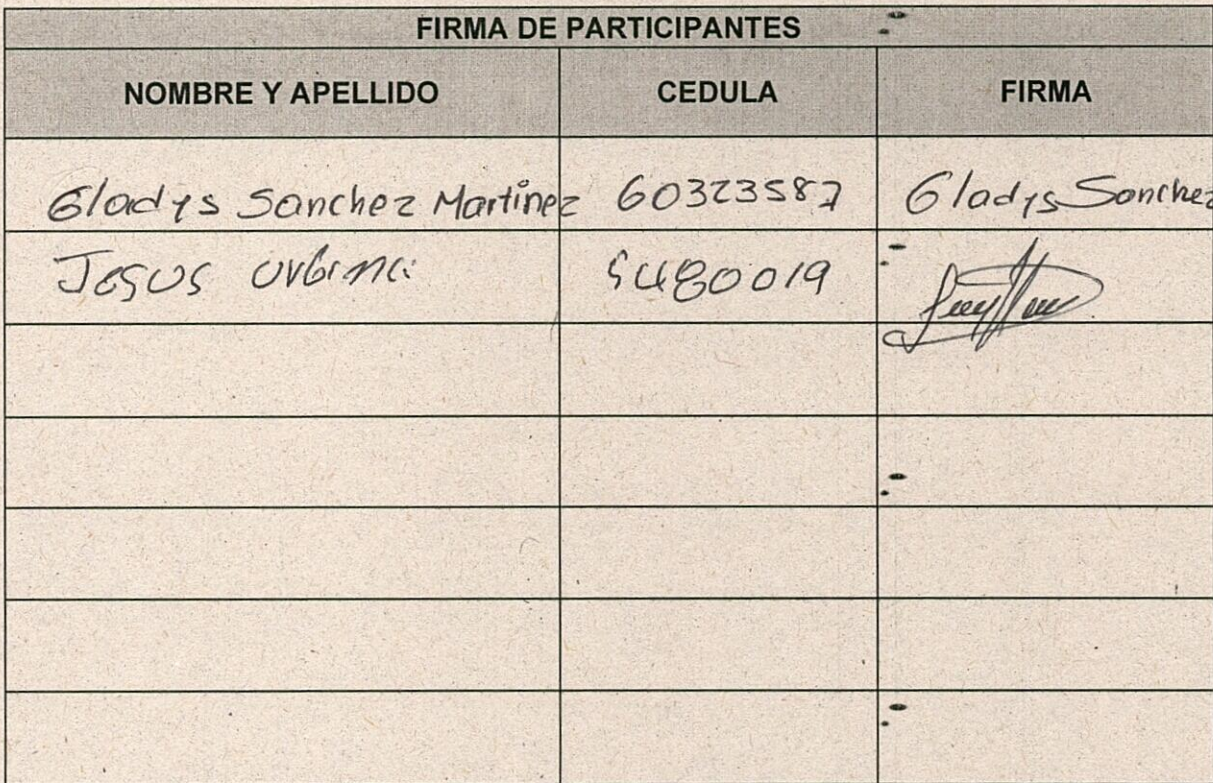 FIRMA DE PARTICIPANTES
NOMBRE Y APELLIDO CEDULA FIRMA
Gladys Sanchez Martinez 60323587 Gladys Sanchez
Jesus Urbina 5480019